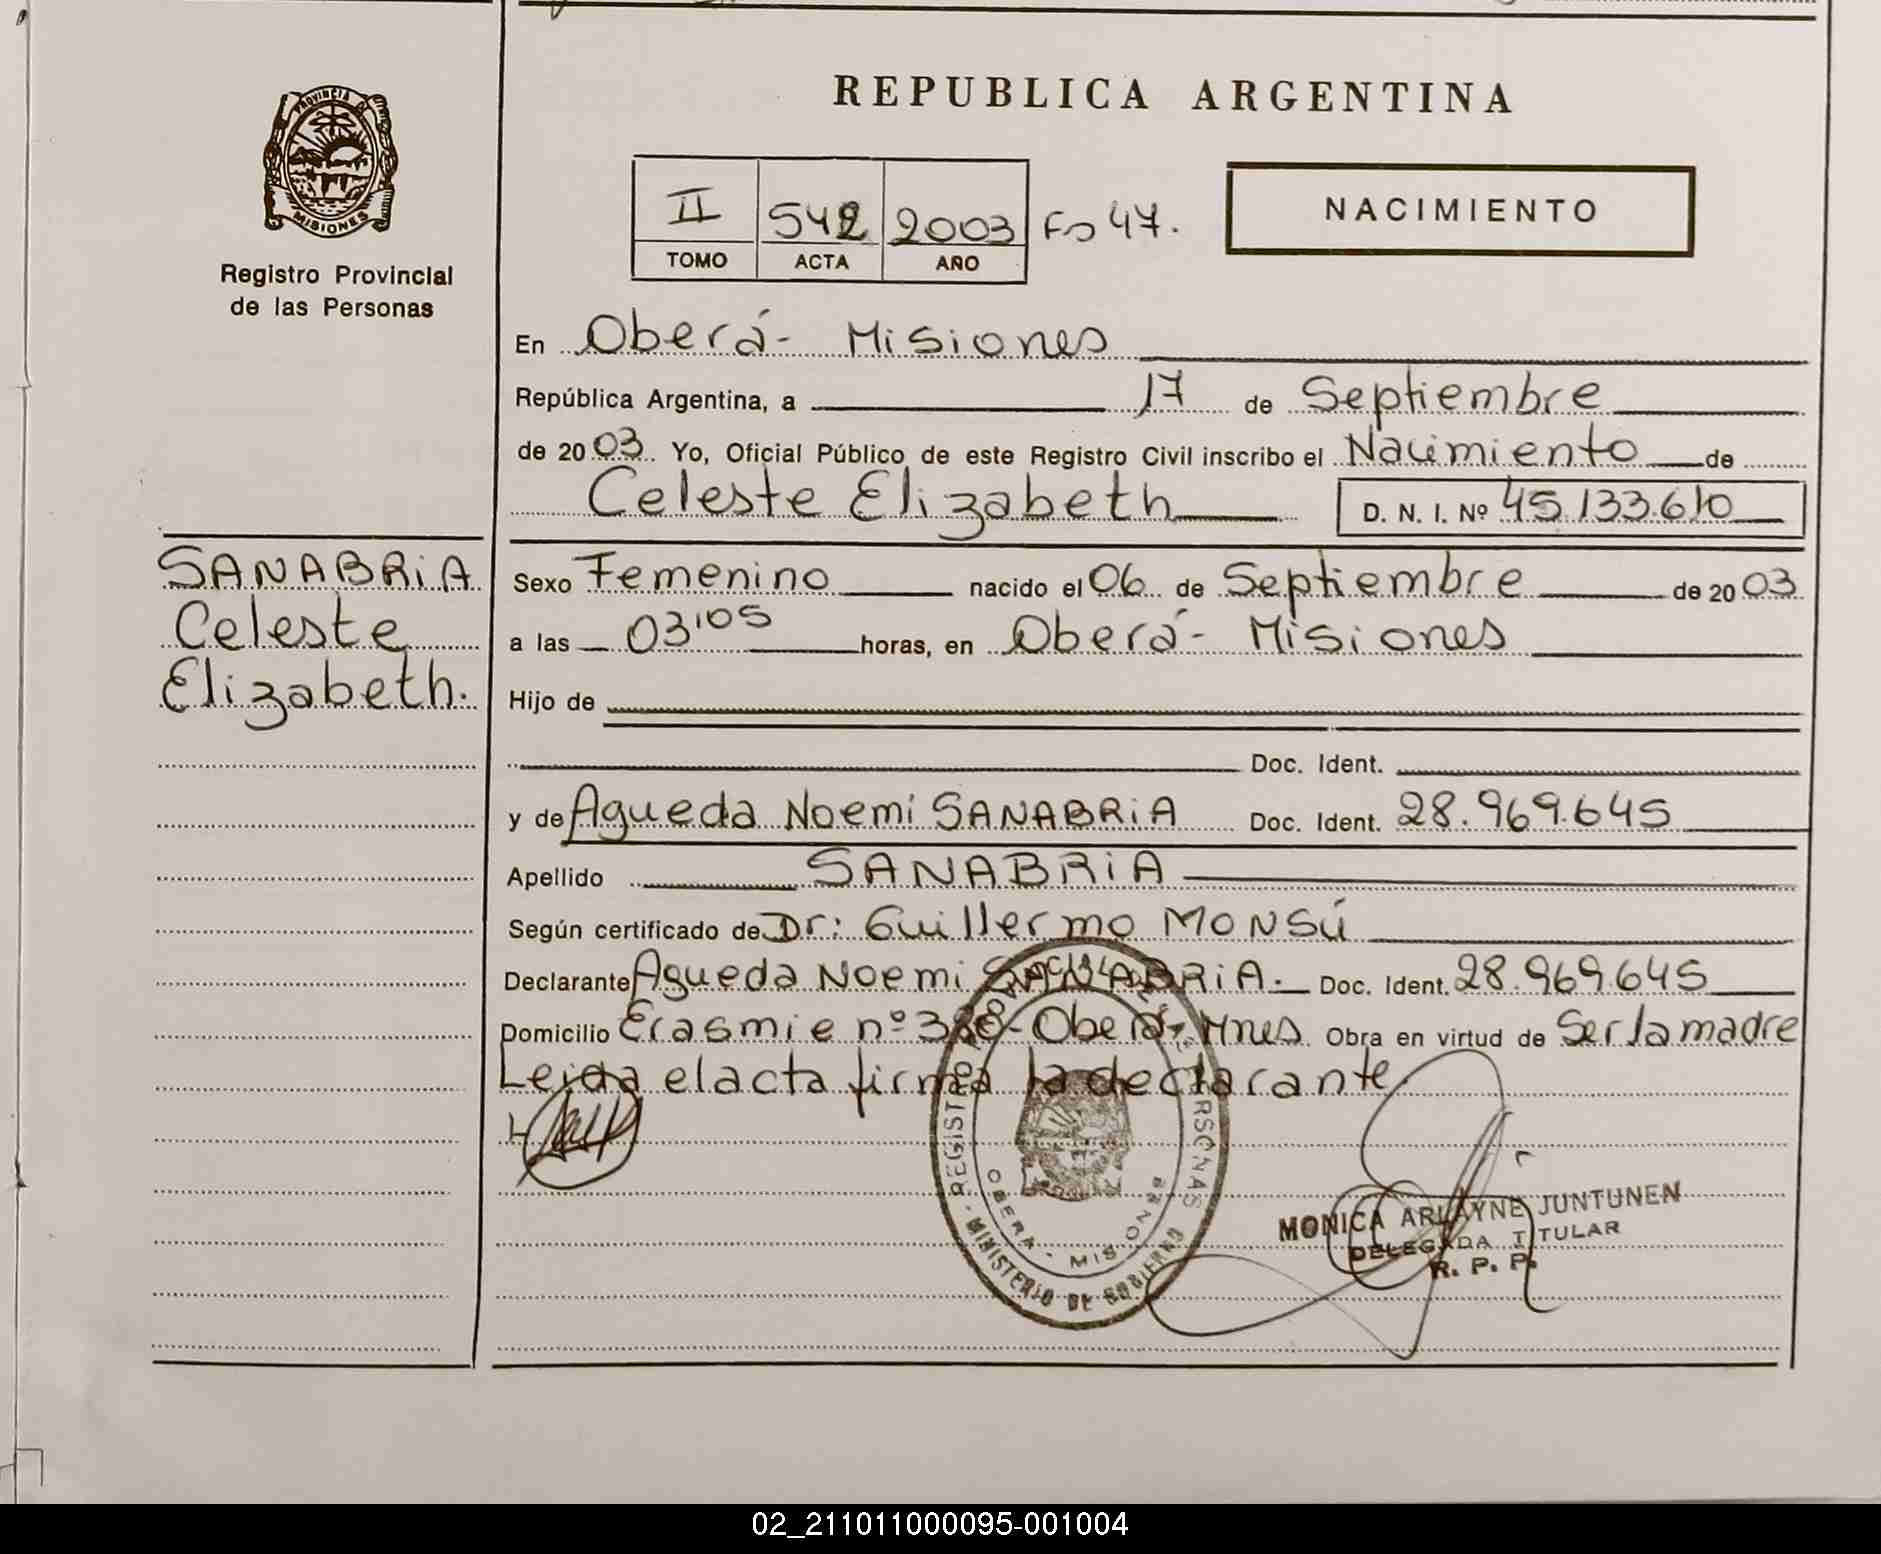 REPUBLICA ARGENTINA
PROVINCIA DE
MISIONES
Registro Provincial
de las Personas
II 542 2003 Fo 47.
TOMO ACTA AÑO
NACIMIENTO
En Oberá- Misiones
República Argentina, a 17 de Septiembre
de 2003 Yo, Oficial Público de este Registro Civil inscribo el Nacimiento de
Celeste Elizabeth D. N. I. Nº 45.133.610
SANABRiA
Celeste
Elizabeth.
Sexo Femenino nacido el 06 de Septiembre de 2003
a las 03'05 horas, en Oberá- Misiones
Hijo de
Doc. Ident.
y de Agueda Noemi SANABRiA Doc. Ident. 28.969.645
Apellido SANABRiA
Según certificado de Dr: Guillermo MONSÚ
Declarante Agueda Noemi SANABRiA. Doc. Ident. 28.969.645
Domicilio Erasmie nº Oberá- Mnes Obra en virtud de Ser la madre
Leida el acta firma la declarante
REGISTRO PROVINCIAL DE LAS PERSONAS
OBERA - MISIONES
- MINISTERIO DE GOBIERNO
MONICA ARLAYNE JUNTUNEN
DELEGADA TITULAR
R. P. P.
02_211011000095-001004